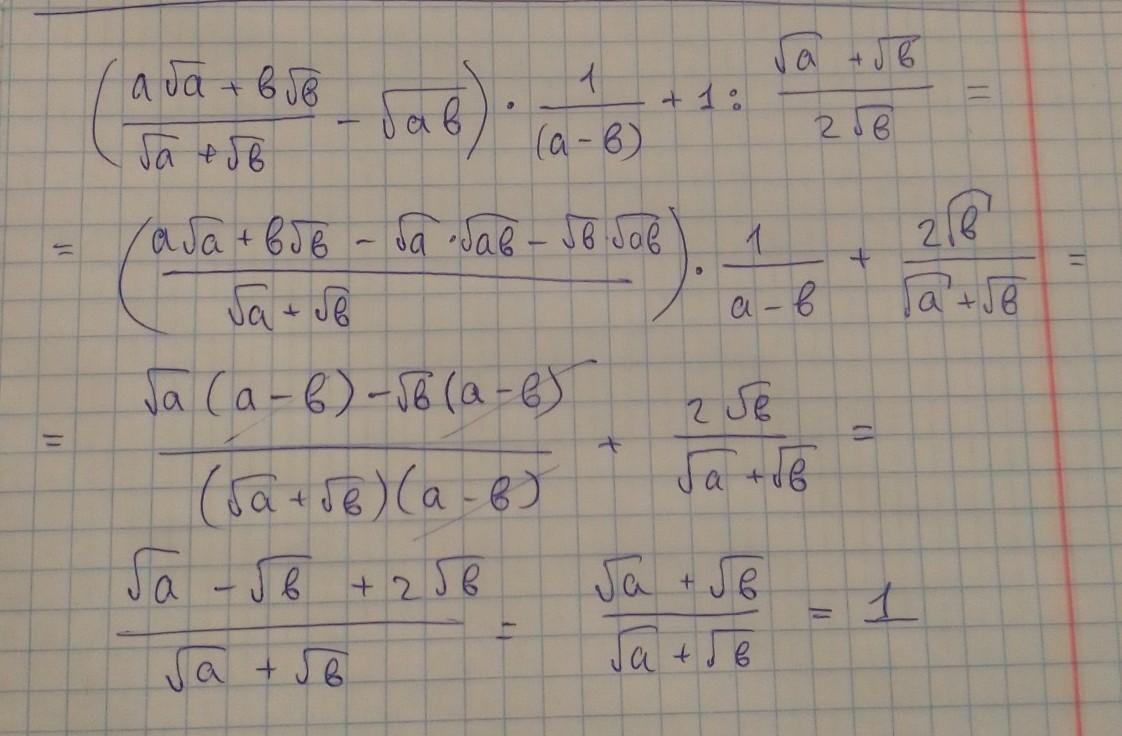 ((a√a + в√в)/(√a + √в) - √aв) · 1/(a - в) + 1 : (√a + √в)/(2√в) =
= ((a√a + в√в - √a · √aв - √в · √aв)/(√a + √в)) · 1/(a - в) + 2√в/(√a + √в) =
= (√a (a - в) - √в (a - в))/((√a + √в)(a - в)) + 2√в/(√a + √в) =
(√a - √в + 2√в)/(√a + √в) = (√a + √в)/(√a + √в) = 1